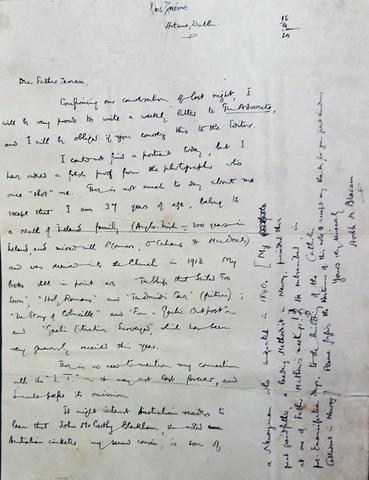 Artane, Dublin.
16
24
Dear Father Tiernan,
Confirming our conversation of last night, I
will be very proud to write a weekly letter to The Advocate,
and I will be obliged if you convey this to the Editor.
I could not find a portrait today, but I
have asked a fresh proof from the photographer who
once "shot" me. There is not much to say about me
except that I am 37 years of age, belong to
a North of Ireland family (Anglo-Irish – 300 years in
Ireland and mixed with O'Connors, O'Cahans & MacDonalds)
and was received into the Church in 1913. My
books still in print are "The Ship that Sailed Too
Soon", "Holy Romans" and "The Druid's Cave" (fiction);
"The Story of Colmcille" and "From a Gaelic Outpost"
and "Gaelic Literature Surveyed", which has been
very generously received this year.
There is no need to mention my connection
with the "I. T." – it may not last forever, and
I would prefer its omission.
It might interest Australian readers to
learn that John McCarthy Blackham, the noted
Australian cricketer my second cousin, is son of
a Newryman who emigrated in 18
[My
great grandfather, a leading Methodist in Newry, presided
at one of Father Mathew's meetings. He subscribed, in
pre-Emancipation days, to the building of the Catholic
Cathedral in Newry]
Please forgive the of this note & accept my thanks for your great kindness.
Yours very sincerely
Aodh de Blacam